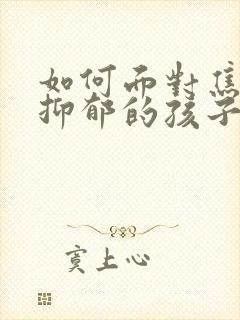 如何面對焦
抑郁的孩子
寞上心